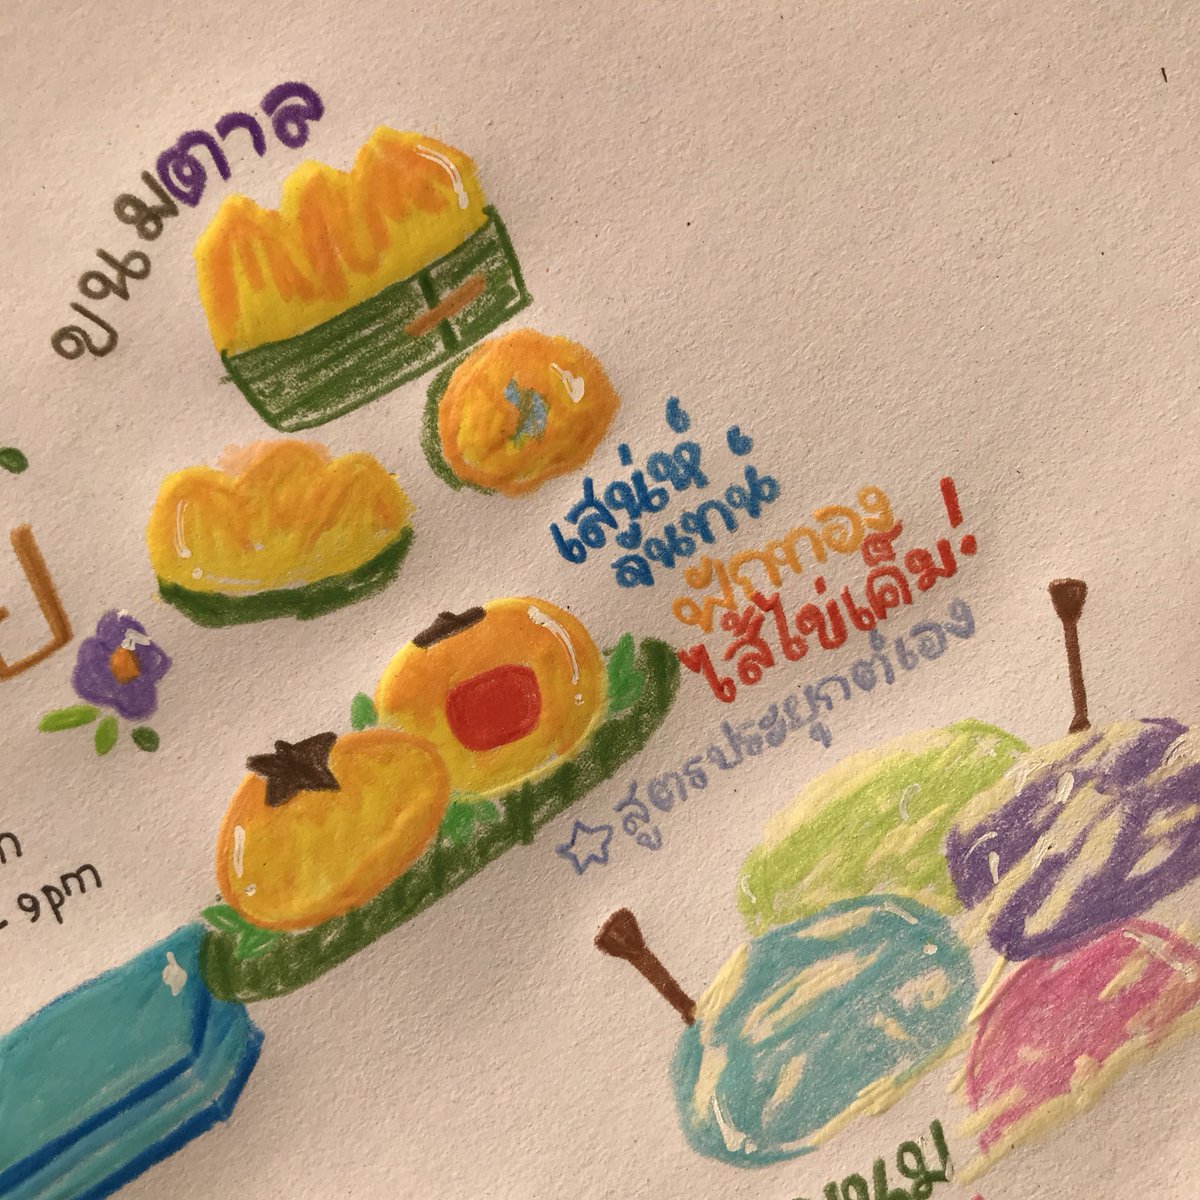 ขนมตาล
เสน่ห์
จันทน์
ฟักทอง
ไส้ไข่เค็ม!
☆ สูตรประยุกต์เอง
- 9pm
ขนม